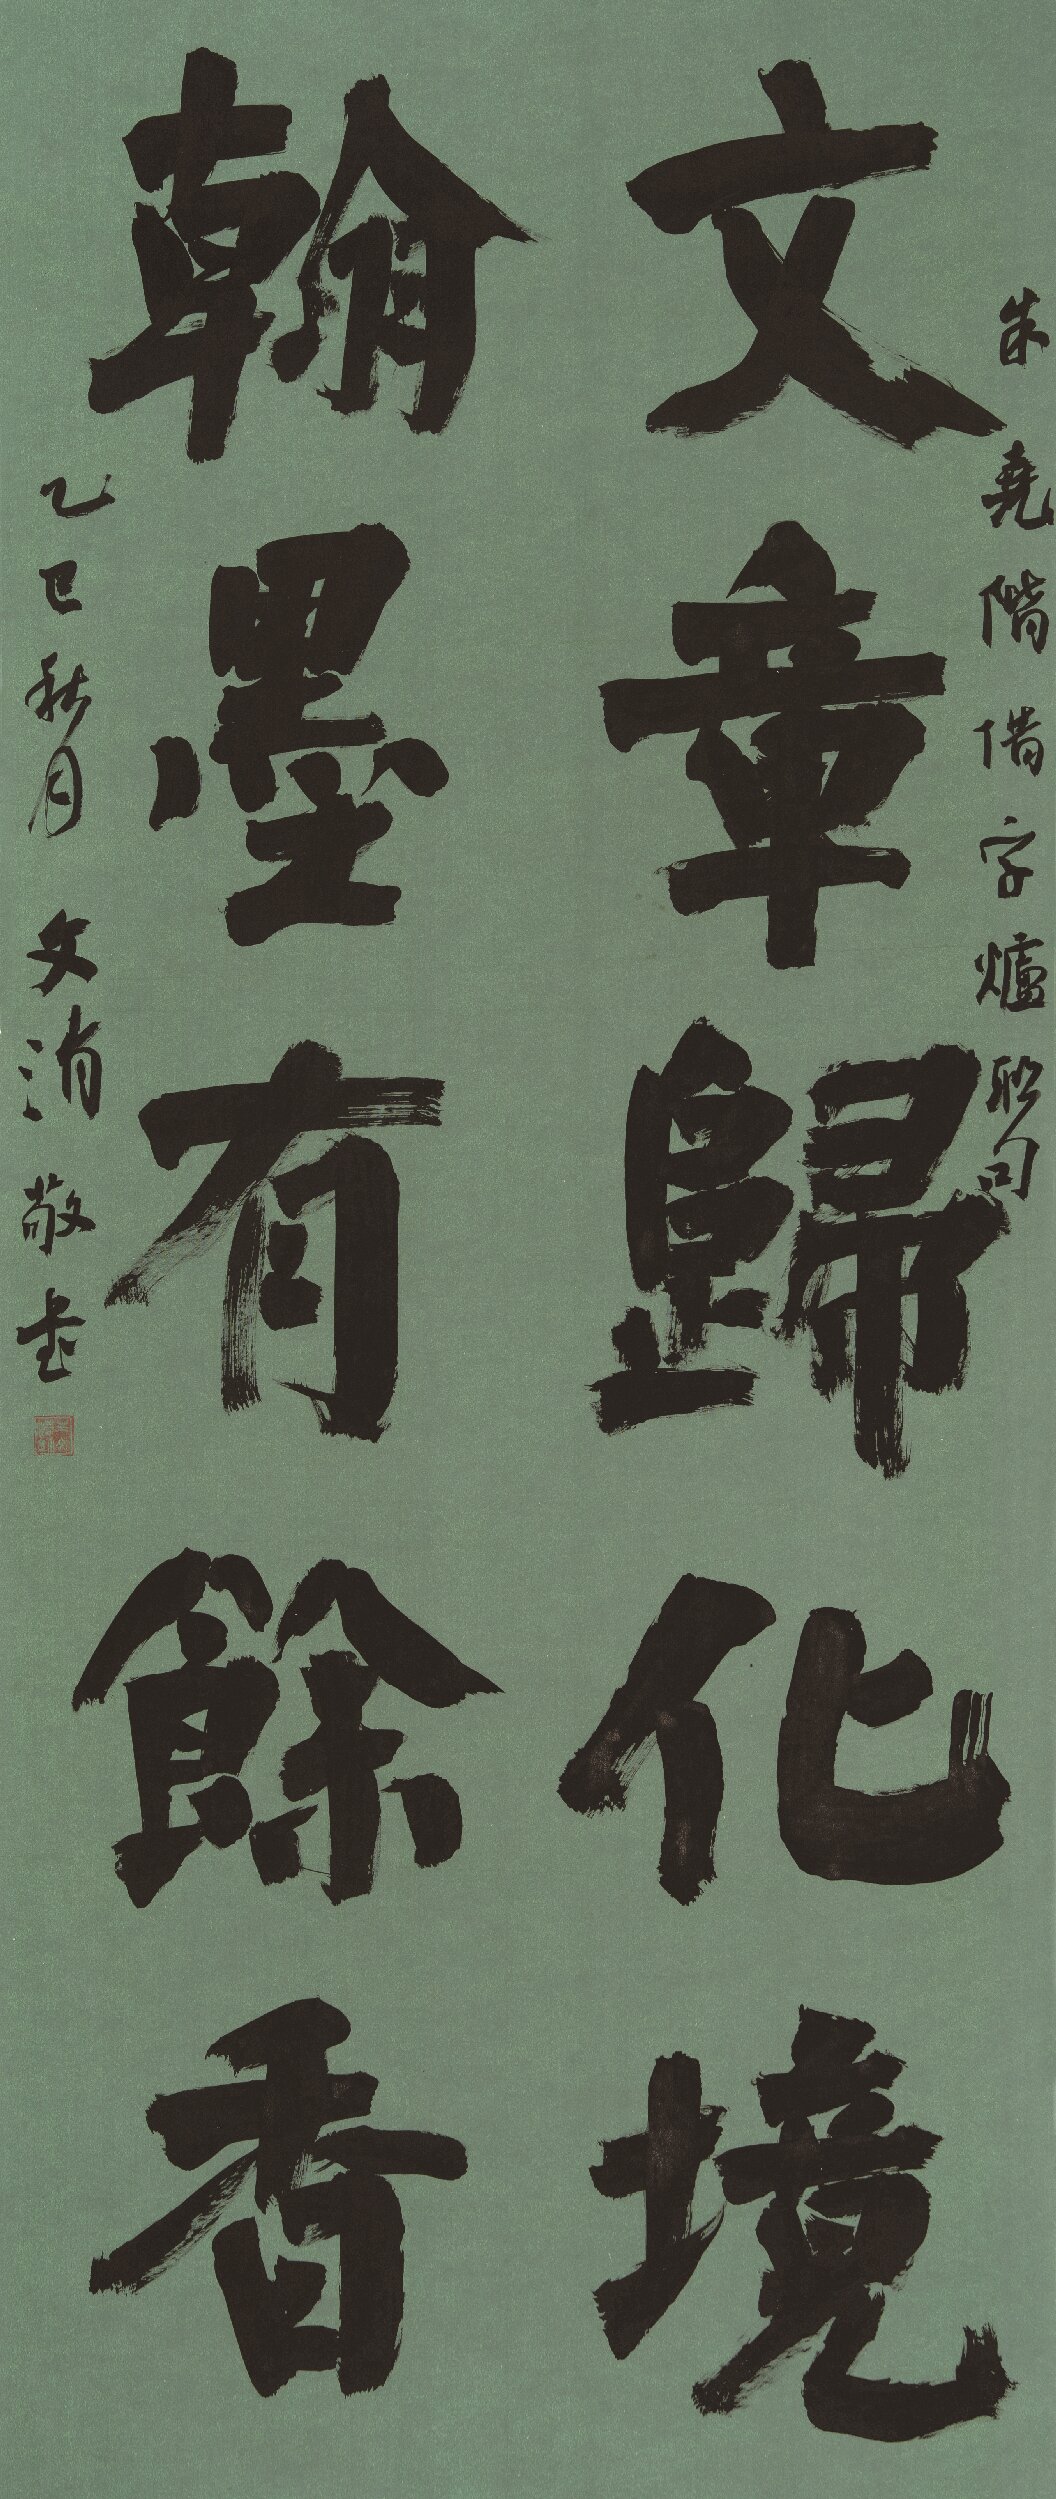 朱堯階惜字爐聯句
文章歸化境
翰墨有餘香
乙巳秋月 文消敬書